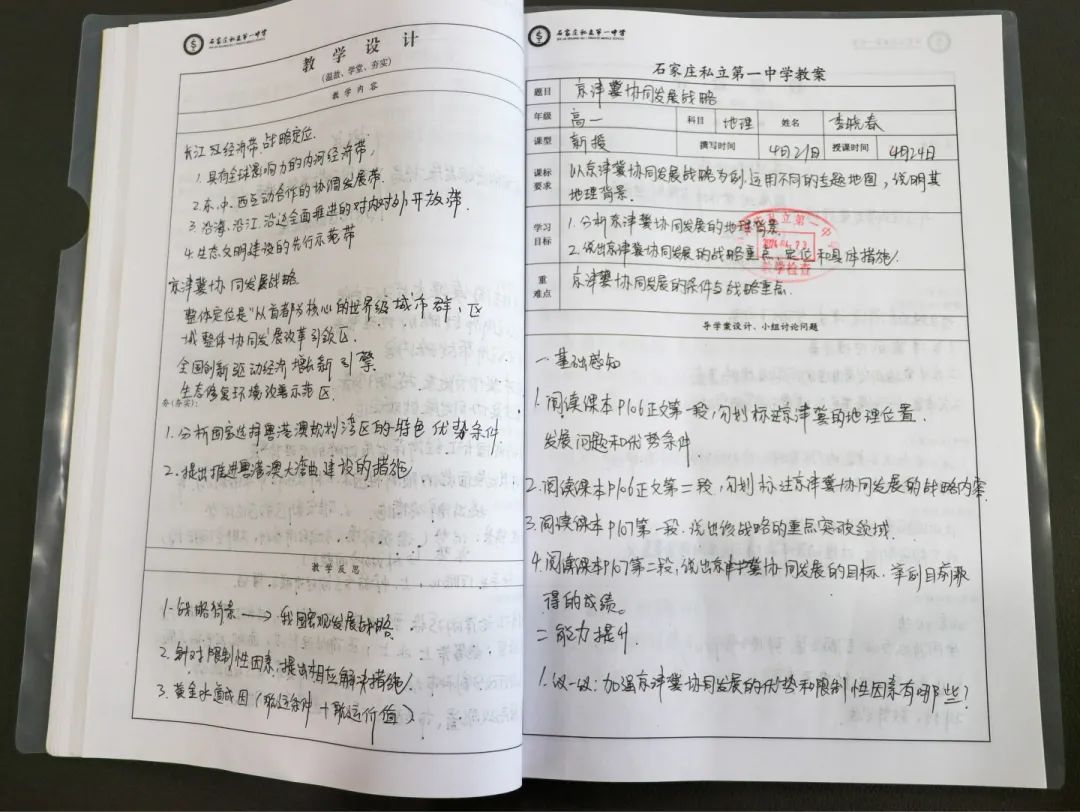 石家庄私立第一中学
教学设计
(温故、学堂、夯实)
教学内容
长江经济带战略定位.
1. 具有全球影响力的内河经济带,
2. 东、中、西互动合作的协调发展带
3. 沿海、沿江、沿边全面推进的对内对外开放带.
4. 生态文明建设的先行示范带
京津冀协同发展战略
整体定位是"以首都为核心的世界级城市群, 区
域整体协同发展改革引领区.
全国创新驱动经济增长新引擎.
生态修复环境改善示范区.
夯(夯实):
1. 分析国家选择粤港澳规划湾区的特色优势条件
2. 提出推进粤港澳大湾曲建设的措施
教学反思
1. 战略背景 → 我国宏观发展战略.
2. 针对限制性因素, 提出相应解决措施
3. 黄金水道成因 (航运条件 + 航运价值)
石家庄私立第一中学
石家庄私立第一中学教案
题目 京津冀协同发展战略
年级 高一 科目 地理 姓名 李晓春
课型 新授 撰写时间 4月21日 授课时间 4月24日
课标要求 以京津冀协同发展战略为例.运用不同的主题地图, 说明其
地理背景.
学习目标 1. 分析京津冀协同发展的地理背景.
2. 说出京津冀协同发展的战略重点、定位和具体措施.
教学检查
重难点 京津冀协同发展的条件与战略重点.
导学案设计、小组讨论问题
一. 基础感知
1. 阅读课本P106正文第一段, 勾划标注京津冀的地理位置.
发展问题和优势条件
2. 阅读课本P106正文第二段, 勾划标注京津冀协同发展的战略内容
3. 阅读课本P107第一段. 说出该战略的重点突破领域.
4. 阅读课本P107第二段, 说出京津冀协同发展的目标. 举例目前取
得的成绩。
二. 能力提升.
1. 议一议: 加强京津冀协同发展的优势和限制性因素有哪些?